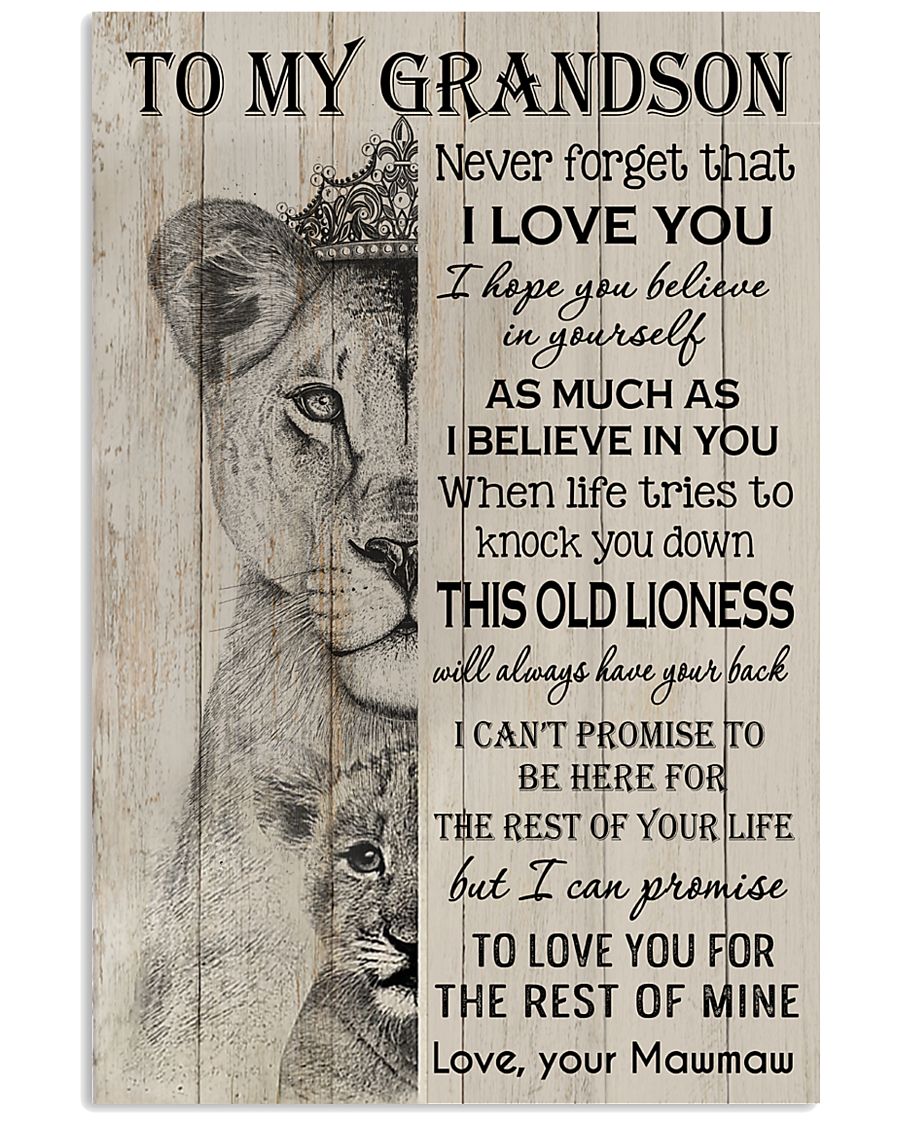 TO MY GRANDSON
Never forget that
I LOVE YOU
I hope you believe
in yourself
AS MUCH AS
I BELIEVE IN YOU
When life tries to
knock you down
THIS OLD LIONESS
will always have your back
I CAN'T PROMISE TO
BE HERE FOR
THE REST OF YOUR LIFE
but I can promise
TO LOVE YOU FOR
THE REST OF MINE
Love, your Mawmaw